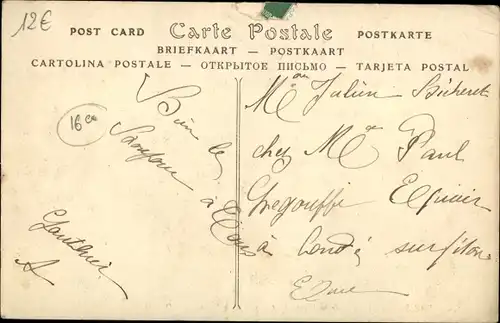 12€
POST CARD Carte Postale POSTKARTE
BRIEFKAART — POSTKAART
CARTOLINA POSTALE — ОТКРЫТОЕ ПИСЬМО — TARJETA POSTAL
16 ce
Bien le
Bonjour
à tous
Gauthier
A
Mme Julien Bécheret
chez Mme Paul
à Condé sur Iton
Eure